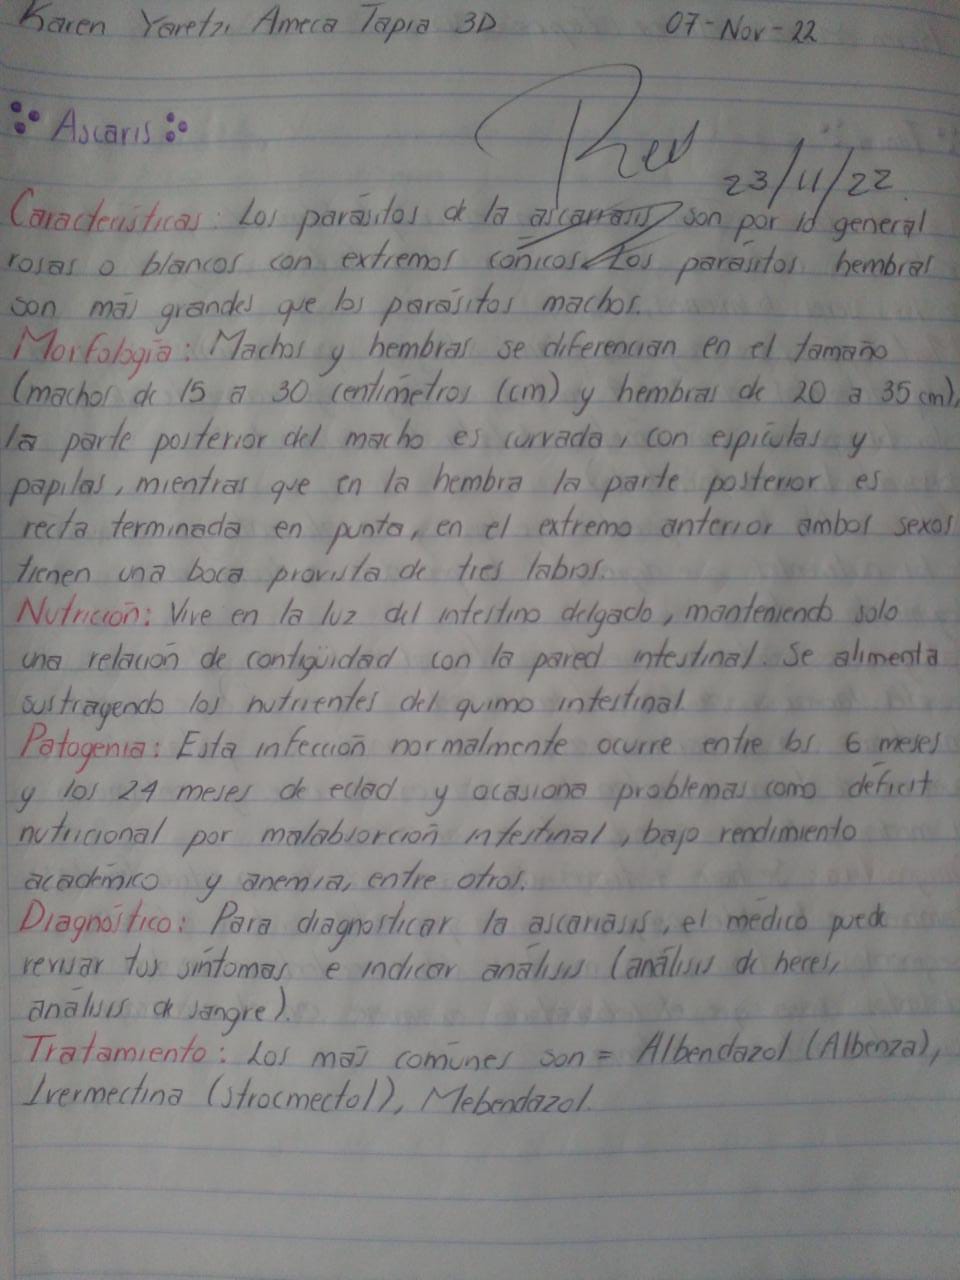 Karen Yaretzi Ameca Tapia 3D 07-Nov-22
Ascaris
Rev 23/11/22
Características: Los parásitos de la ascarasis son por lo general
rosas o blancos con extremos cónicos. Los parásitos hembras
son más grandes que los parásitos machos.
Morfología: Machos y hembras se diferencian en el tamaño
(machos de 15 a 30 centímetros (cm) y hembras de 20 a 35 cm),
la parte posterior del macho es curvada, con espículas y
papilas, mientras que en la hembra la parte posterior es
recta terminada en punta, en el extremo anterior ambos sexos
tienen una boca provista de tres labios.
Nutrición: Vive en la luz del intestino delgado, manteniendo solo
una relación de contigüidad con la pared intestinal. Se alimenta
sustrayendo los nutrientes del quimo intestinal
Patogenia: Esta infección normalmente ocurre entre los 6 meses
y los 24 meses de edad y ocasiona problemas como déficit
nutricional por malabsorción intestinal, bajo rendimiento
académico y anemia, entre otros.
Diagnóstico: Para diagnosticar la ascariasis, el médico puede
revisar tus síntomas e indicar análisis (análisis de heces,
análisis de sangre).
Tratamiento: Los más comúnes son = Albendazol (Albenza),
Ivermectina (Strocmectol), Mebendazol.